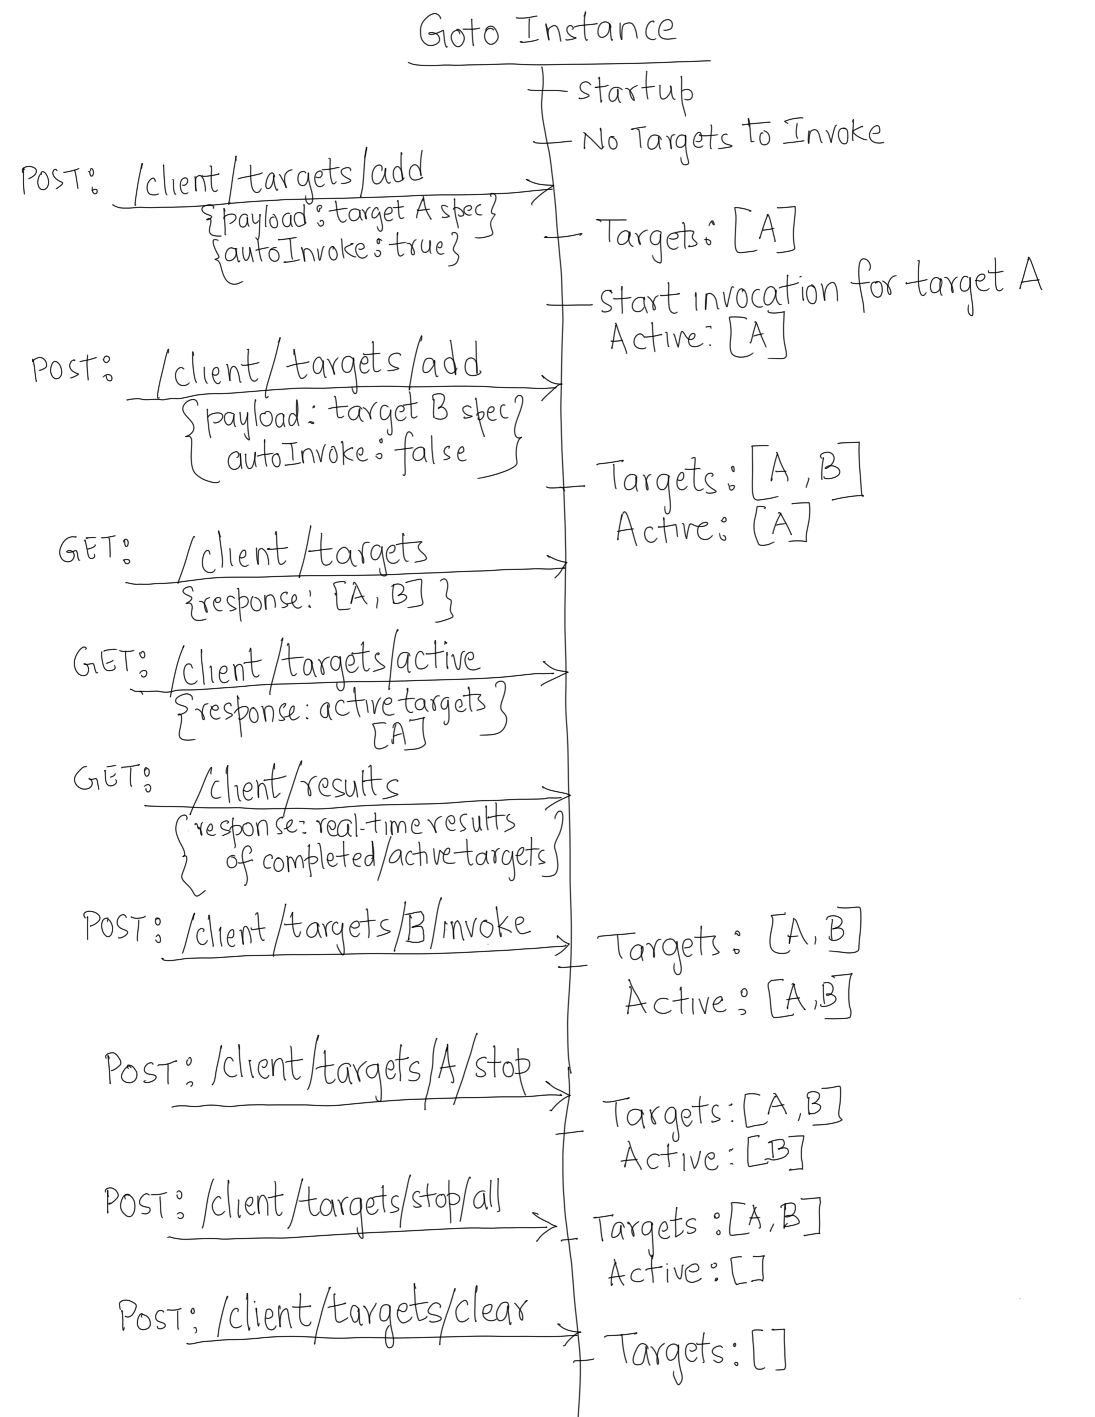 Goto Instance
startup
No Targets to Invoke
POST: /client/targets/add
{payload: target A spec}
{autoInvoke: true}
Targets: [A]
Start invocation for target A
Active: [A]
POST: /client/targets/add
{payload: target B spec
autoInvoke: false}
Targets: [A, B]
Active: [A]
GET: /client/targets
{response: [A, B] }
GET: /client/targets/active
{response: active targets
[A]}
GET: /client/results
{response: real-time results
of completed/active targets}
POST: /client/targets/B/invoke
Targets: [A, B]
Active: [A,B]
POST: /client/targets/A/stop
Targets: [A,B]
Active: [B]
POST: /client/targets/stop/all
Targets: [A,B]
Active: []
POST: /client/targets/clear
Targets: []